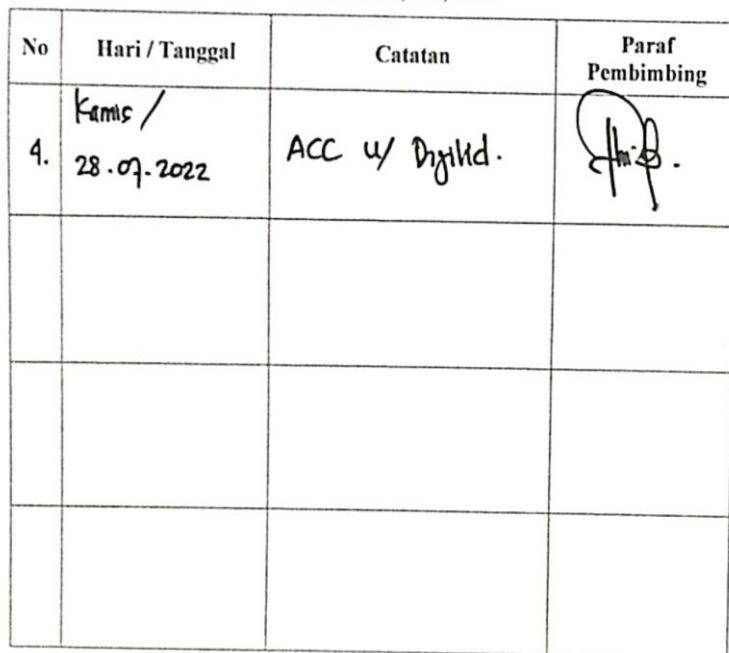 No
Hari / Tanggal
Catatan
Paraf
Pembimbing
4.
Kamis /
28.07.2022
ACC u/ Dijilid.